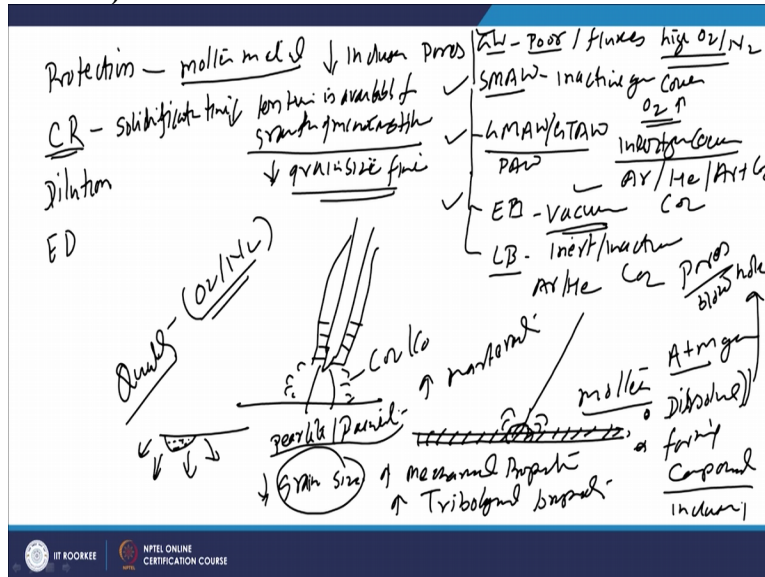 Protection - molten metal ↓ Inclusion Pores
CR - solidification time less time is available for
growth of
↓ grain size fine
Dilution
ED
GW - Poor / fluxes high O2/N2
SMAW - Inactive gas cover
O2 ↑
GMAW/GTAW Inert gas cover
PAW Ar / He / Ar+C
EB - Vacuum CO2
LB - Inert/Inactive
Ar/He CO2 Pores
blow hole
Quality - (O2/N2)
CO2/CO
pearlite /
↓ Grain Size ↑ Mechanical
↑ Tribological
molten Atm gas
Dissolve
forming
Compound
IIT ROORKEE
NPTEL ONLINE
CERTIFICATION COURSE